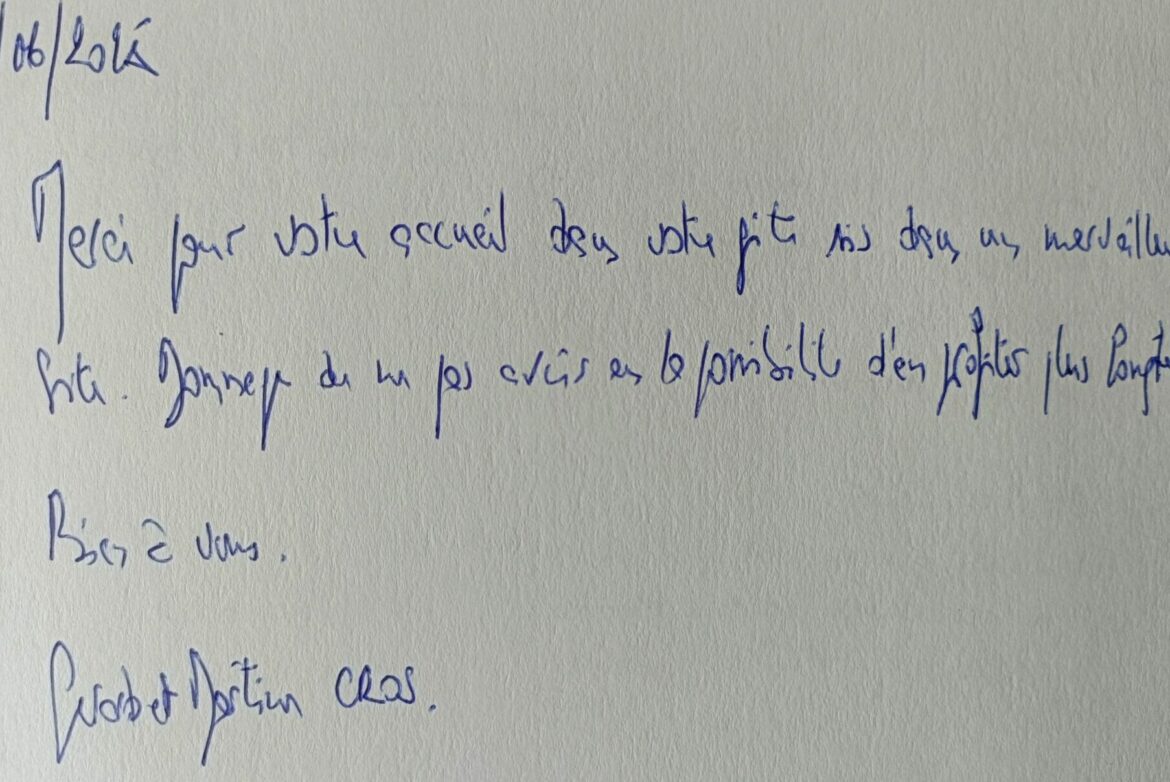 /06/2024
Merci pour votre accueil dans votre gîte sis dans un merveilleu
site. Dommage de ne pas avoir eu la possibilité d'en profiter plus longte
Bien à vous.
et Martine CROS.